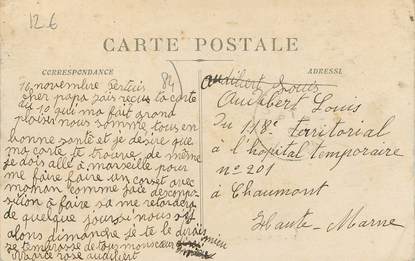 12.6
CARTE POSTALE
CORRESPONDANCE
ADRESSE
16 novembre Pertuis 84
cher papa jais reçus ta carte
du 10 qui ma fait grand
plaisir nous somme tous en
bonne santé et je désire que
ma carte te trouve de même
je dois allé à marseille pour
me faire faire un corset avec
maman comme jaie des
sition à faire sa me retardera
de quelque jours si nous
alons dimanche je te le dirais
je tembrasse de tous mon cœur mieu
rose audibert
audibert Louis
Audibert Louis
Du 118e territorial
à l'hopital temporaire
nº 201
à Chaumont
Haute-Marne